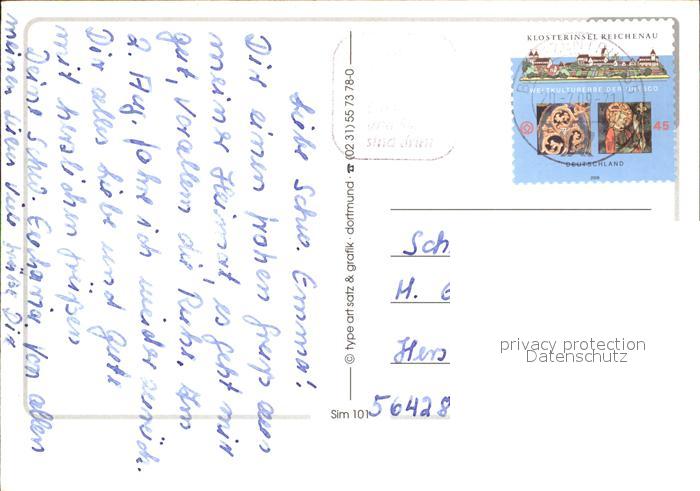 Liebe Schw. Emma!
Dir einen frohen Gruß aus
meiner Heimat, es geht mir
gut, vorallem die Ruhe. Am
2. Aug. fahre ich wieder zurück.
Dir alles Liebe und Gute
mit herzlichen Grüßen
Deine Schw. Von allen
meinen Grüße Dir
© type art satz & grafik · dortmund · ☎ (02 31) 55 73 78-0
Sim 101
KLOSTERINSEL REICHENAU
WELTKULTURERBE DER UNESCO
45
DEUTSCHLAND
2008
sind drin!
Sch
M. E
Hers
56428
privacy protection
Datenschutz